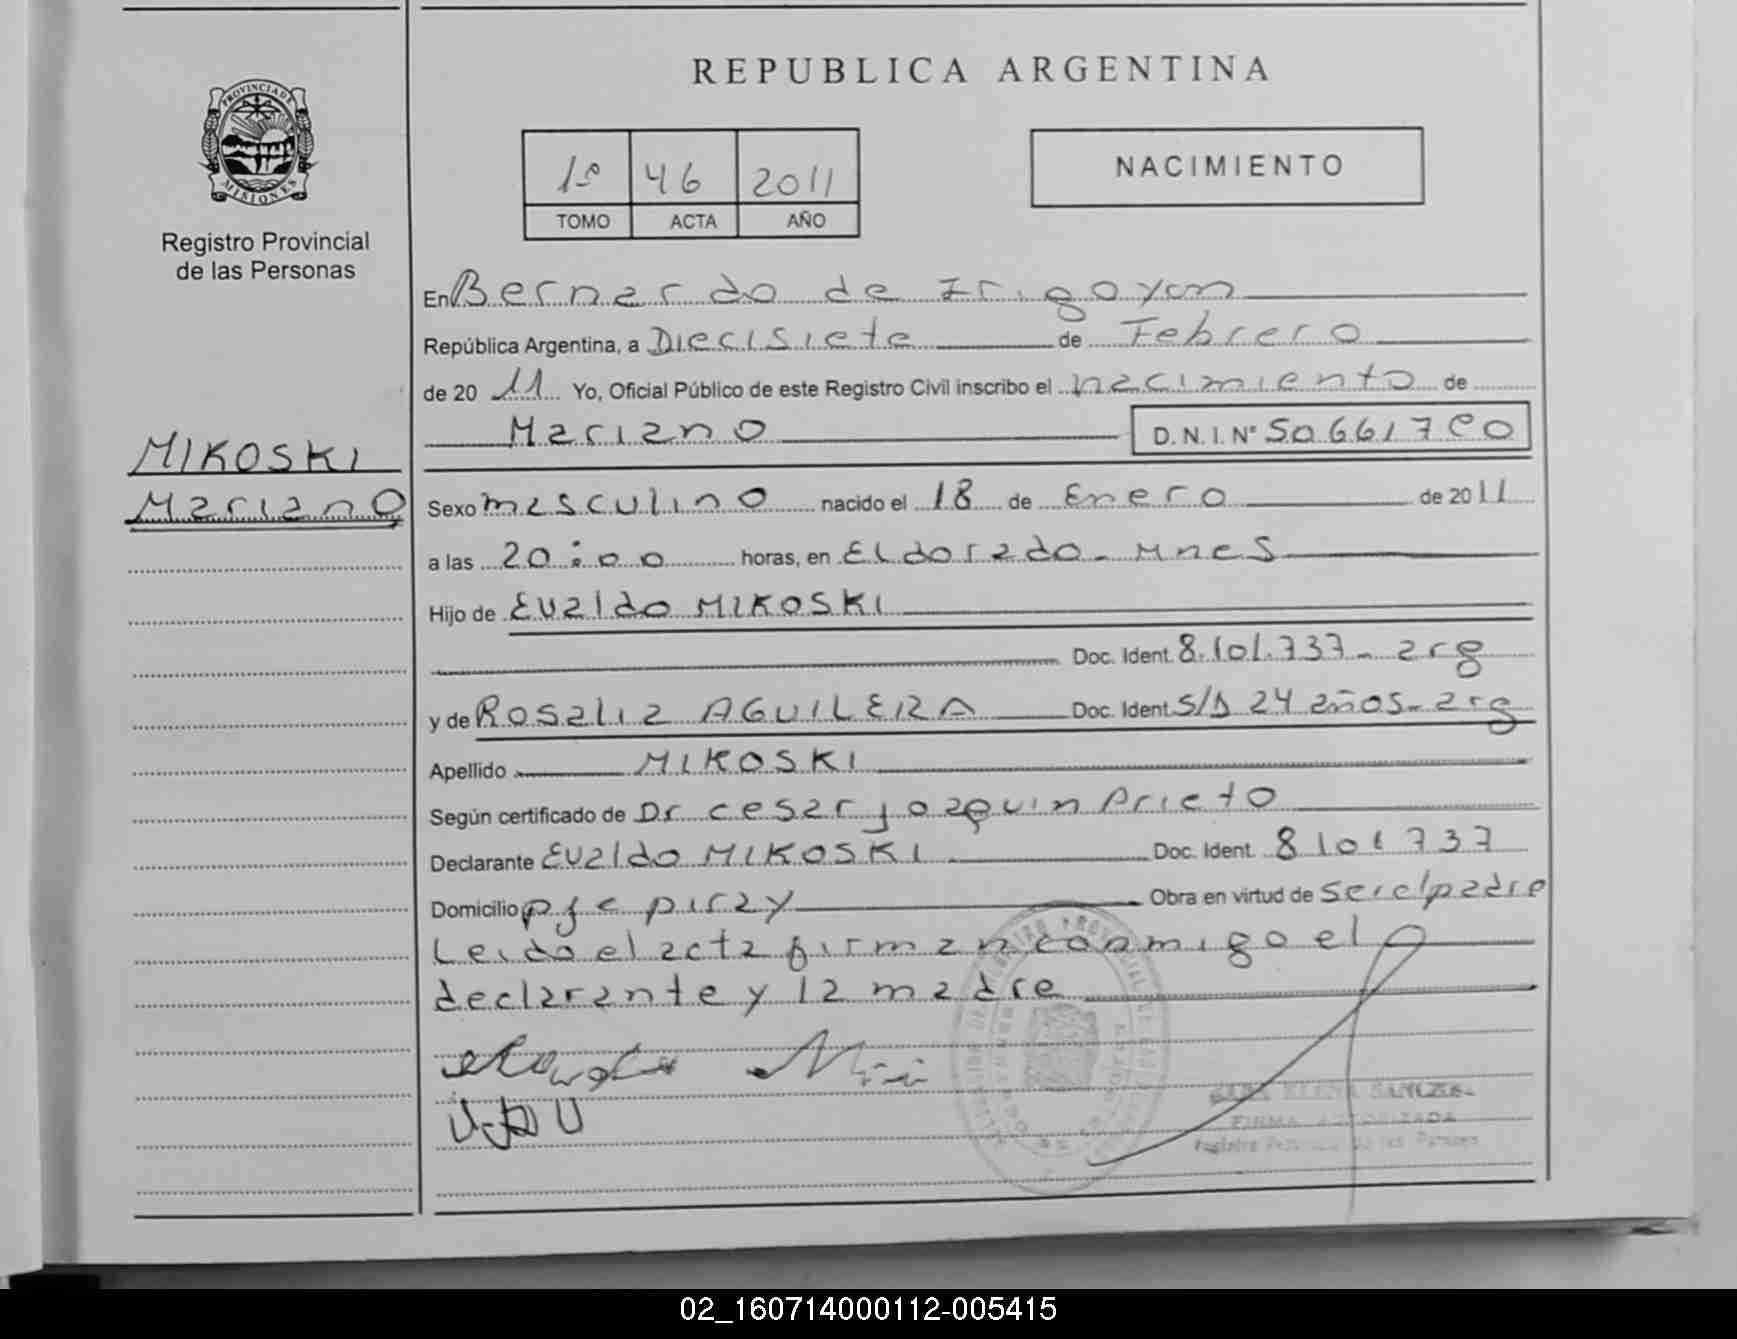 REPUBLICA ARGENTINA
PROVINCIA DE
MISIONES
Registro Provincial
de las Personas
1º 46 2011
TOMO ACTA AÑO
NACIMIENTO
En Bernardo de Irigoyen
República Argentina, a Diecisiete de Febrero
de 2011 Yo, Oficial Público de este Registro Civil inscribo el nacimiento de
Mariano D.N.I. Nº
MIKOSKI
Mariano
Sexo masculino nacido el 18 de Enero de 2011
a las 20:00 horas, en Eldorado - Mnes
Hijo de Evaldo MIKOSKI
Doc. Ident. 8.101.737- arg
y de Rosalia AGUILERA Doc. Ident. S/D 24 años - arg
Apellido MIKOSKI
Según certificado de Dr cesar joaquin Prieto
Declarante Evaldo MIKOSKI Doc. Ident. 8101737
Domicilio pje piray Obra en virtud de ser el padre
Leido el acta firman conmigo el
declarante y la madre
SARA ELENA SANCHEZ
FIRMA AUTORIZADA
Registro Provincial de las Personas
02_160714000112-005415